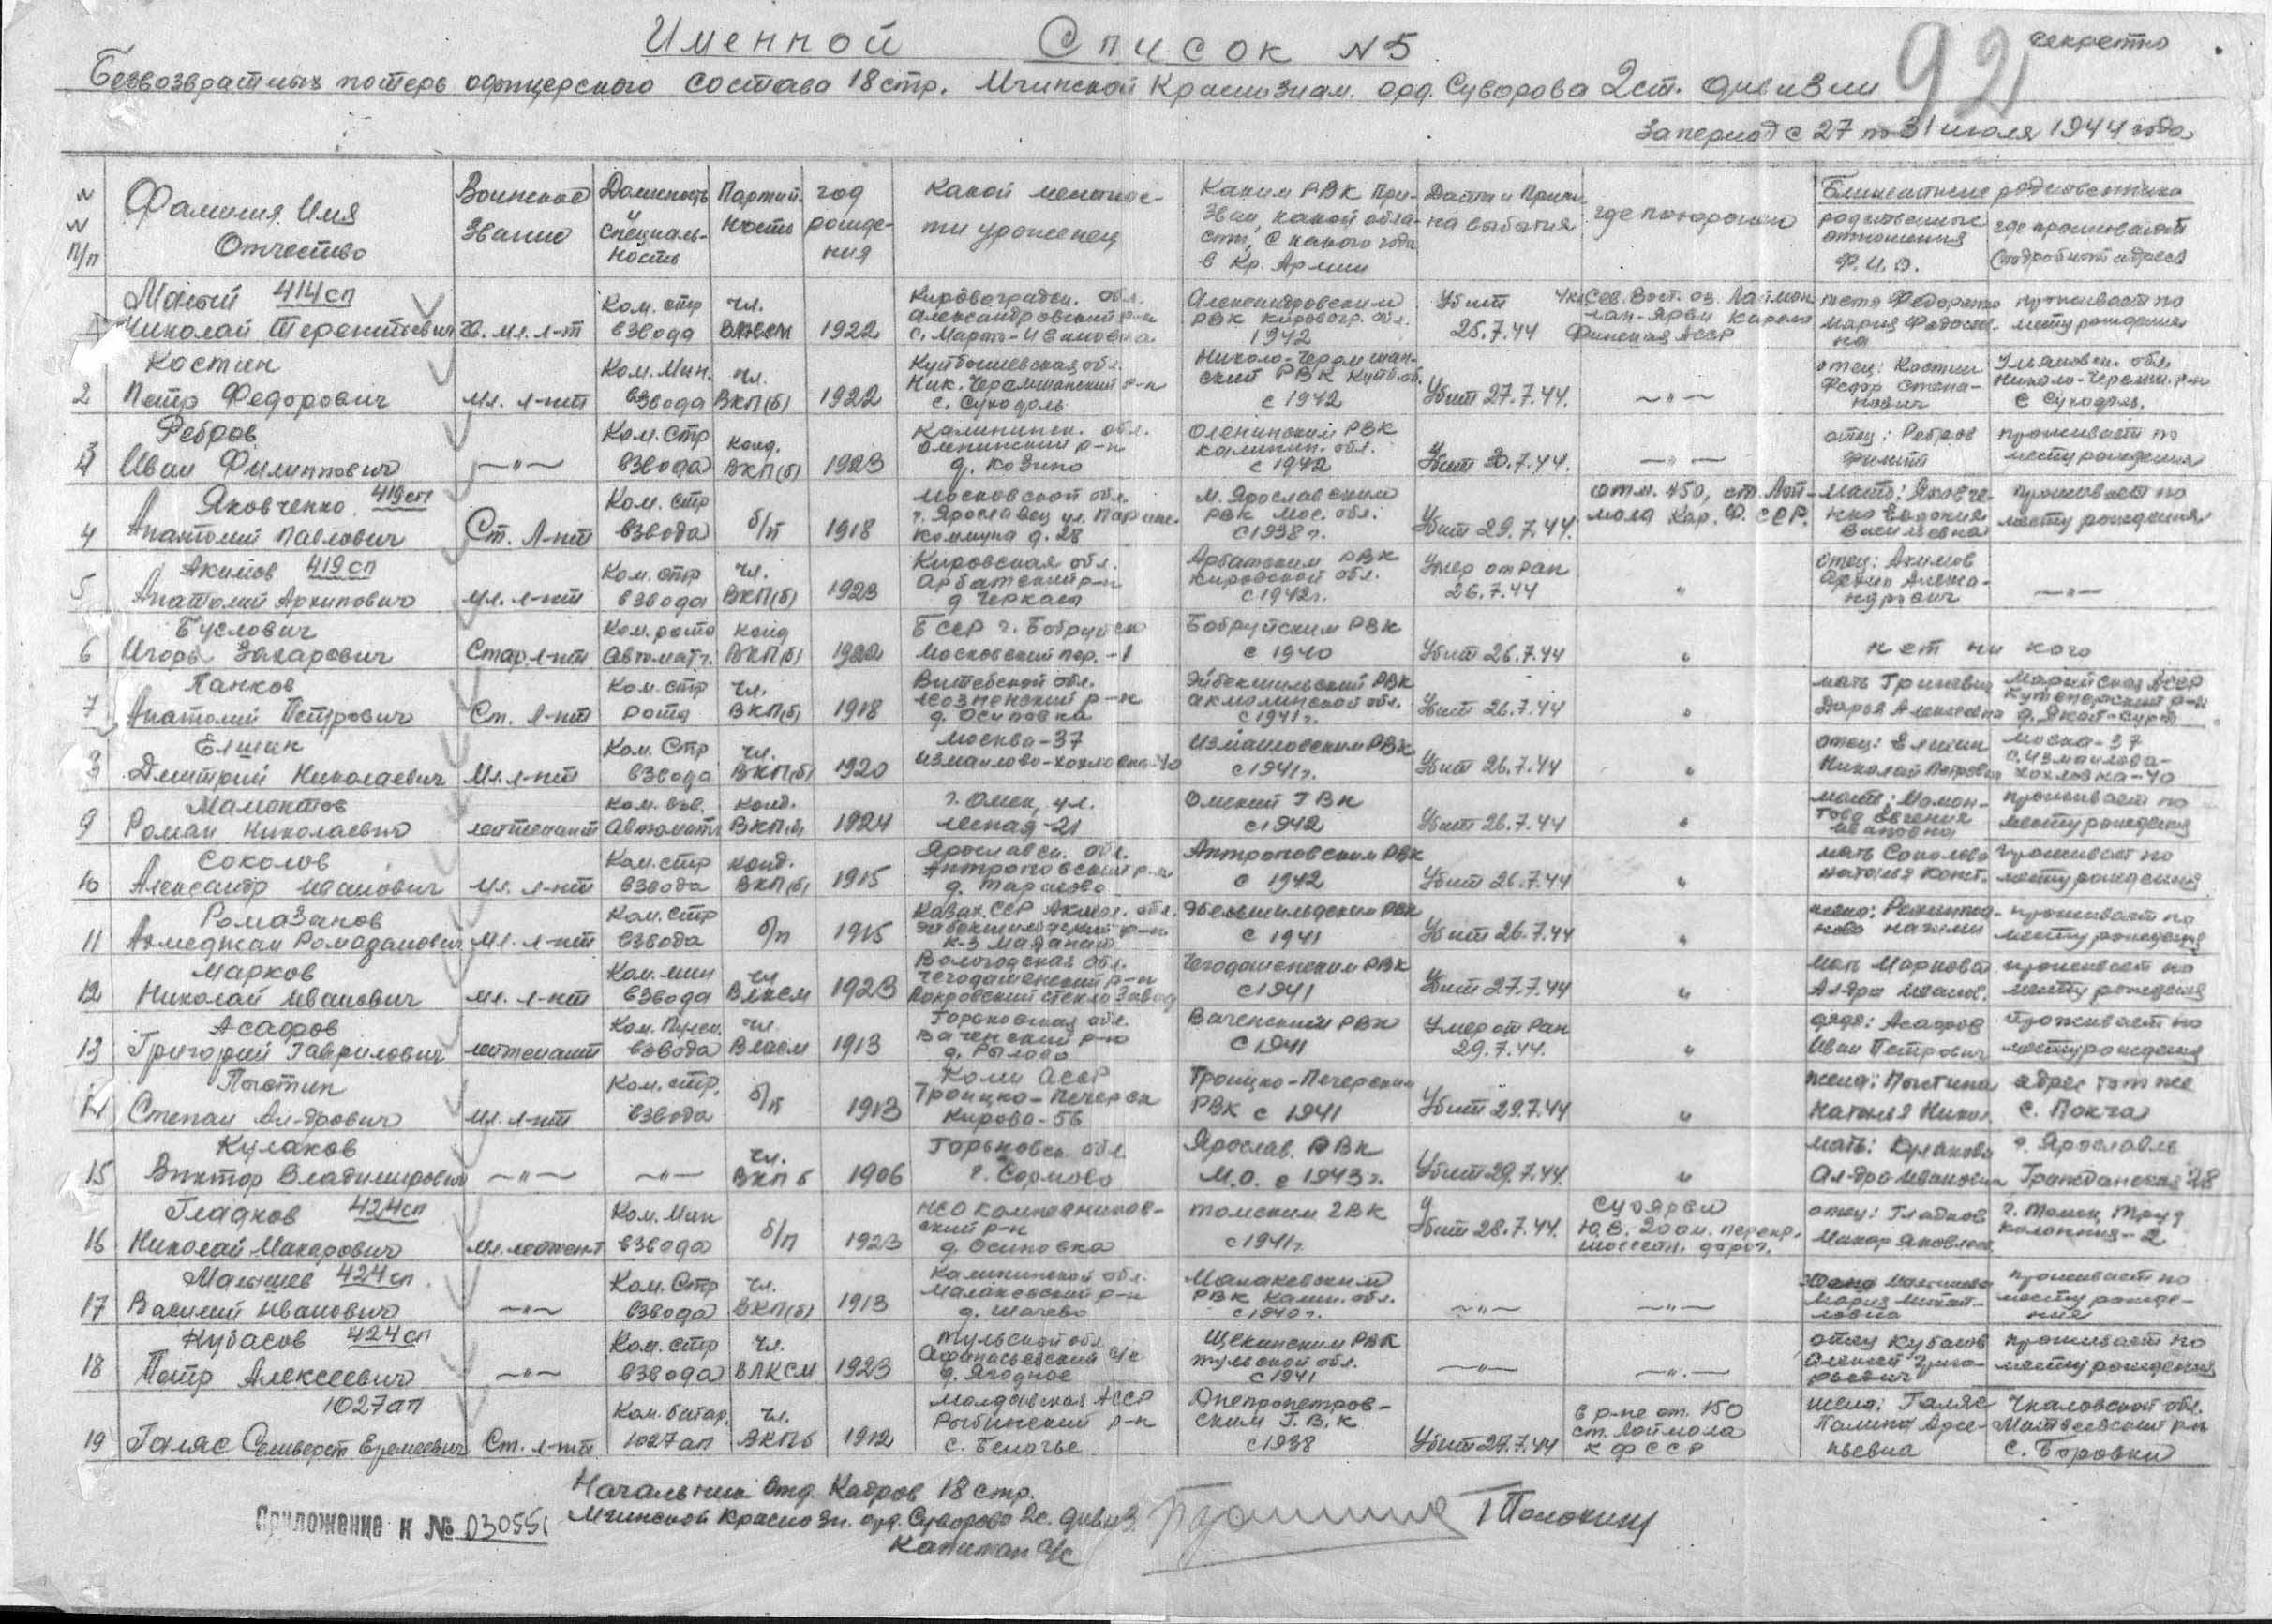 Именной Список №5
92
секретно
Безвозвратных потерь офицерского состава 18 стр. Мгинской Краснознам. орд. Суворова 2 ст. дивизии
За период с 27 по 31 июля 1944 года
№ № п/п | Фамилия Имя Отчество | Воинское звание | Должность и специальность | Партийность | год рождения | Какой местности уроженец | Каким РВК призван, какой области, с какого года в Кр. Армии | Дата и причина выбытия | где похоронен | Ближайшие родственники
родственные отношения Ф.И.О. | где проживают (подробный адрес)
Малый 414 сп
1 Николай Терентьевич | мл. л-т | Ком. стр взвода | чл. | 1922 | Кировоградск. обл. Александровский р-н с. Марто-Ивановка | Александровским РВК Кировогр. обл. 1942 | Убит 25.7.44 | Сев. Вост. оз. Финская АССР | тетя Федоренко Мария | проживает по месту рождения
Костин
2 Петр Федорович | мл. л-нт | Ком. Мин. взвода | чл. ВКП(б) | 1922 | Куйбышевская обл. Ник. Черемшанский р-н с. Суходоль | Николо-Черемшанский РВК Куйб. об. с 1942 | Убит 27.7.44. | —"— | отец: Костин Федор | Ульяновск. обл. Николо-Черемш. р-н с Суходоль.
Ребров
3 Иван Филиппович | —"— | Ком. стр взвода | канд. ВКП(б) | 1923 | Калининск. обл. Оленинский р-н д. Козино | Оленинским РВК Калинин. обл. с 1942 | Убит 30.7.44. | —"— | отец: Ребров Филипп | проживает по месту рождения
Яковченко. 419 сп
4 Анатолий Павлович | Ст. Л-нт | Ком. стр взвода | б/п | 1918 | Московской обл. г. Ярославец ул. Париж. Коммуна д. 28 | М. Ярославским РВК Мос. обл. с 1938 г. | Убит 29.7.44. | отм. 150, ст. Лоймола Кар. Ф. ССР. | Мать: Яковченко Евдокия Васильевна | проживает по месту рождения
Акимов 419 сп
5 Анатолий Архипович | мл. л-нт | Ком. стр взвода | чл. ВКП(б) | 1923 | Кировская обл. Арбатский р-н д | Арбатским РВК Кировской обл. с 1942 г. | Умер от ран 26.7.44 | " | отец: Акимов Архип Александрович | —"—
Буслович
6 Игорь Захарович | Стар. л-нт | Ком. роты Автоматч. | канд ВКП(б) | 1922 | БССР г. Бобруйск Московский пер. -1 | Бобруйским РВК с 1940 | Убит 26.7.44 | " | нет ни кого
Панков
7 Анатолий Петрович | Ст. л-нт | Ком. стр роты | чл. ВКП(б) | 1918 | Витебской обл. Лиозненский р-н д. Осиповка | Эйбекшильский РВК Акмолинской обл. с 1941 г. | Убит 26.7.44 | " | мать Дарья Алексеевна | Марийская АССР р-н
Елшин
8 Дмитрий Николаевич | Мл. л-нт | Ком. Стр взвода | чл. ВКП(б) | 1920 | Москва-37 Измайлово-хохловка-40 | Измайловским РВК с 1941 г. | Убит 26.7.44 | " | отец: Елшин Николай Петрович | Москва-37 Измайлова-хохловка-40
Мамонтов
9 Роман Николаевич | лейтенант | Ком. взв. Автоматч | канд. ВКП(б) | 1924 | г. Омск, ул. Лесная-21 | Омский ГВК с 1942 | Убит 26.7.44 | " | мать: Мамонтова Евгения Ивановна | проживает по месту рождения
Соколов
10 Александр Иванович | мл. л-нт | Ком. стр взвода | канд. ВКП(б) | 1915 | Ярославск. обл. Антроповский р-н д. Тарасово | Антроповским РВК с 1942 | Убит 26.7.44 | " | мать Соколова Наталья Конст. | проживает по месту рождения
Ромазанов
11 Ахмеджан Ромаданович | мл. л-нт | Ком. стр взвода | б/п | 1915 | Казах. ССР Акмол. обл. р-н к-з Маданат | РВК с 1941 | Убит 26.7.44 | " | жена: | проживает по месту рождения
Марков
12 Николай Иванович | мл. л-нт | Ком. мин взвода | чл ВЛКСМ | 1923 | Вологодская обл. Чегодашенский р-н Покровский стекло завод | Чегодошенским РВК с 1941 | Убит 27.7.44 | " | мать Маркова Ал-дра Иванов. | проживает по месту рождения
Асафов
13 Григорий Гаврилович | лейтенант | Ком. Пулем. взвода | чл. ВЛКСМ | 1913 | Горьковская обл. Вачевский р-н д. Рылово | Ваченский РВК с 1941 | Умер от ран 29.7.44. | " | дядя: Асафов Иван Петрович | проживает по месту рождения
Пыстин
14 Степан Ал-дрович | мл. л-нт | Ком. стр. взвода | б/п | 1913 | Коми АССР Троицко-Печорск Кирова-56 | Троицко-Печерским РВК с 1941 | Убит 29.7.44 | " | жена: Пыстина Наталья Никол. | адрес тот же с. Покча
Кулаков
15 Виктор Владимирович | —"— | —"— | чл. ВКП б | 1906 | Горьковск. обл г. Сормово | Ярослав. РВК М.О. с 1943 г. | Убит 29.7.44. | " | мать: Кулакова Ал-дра Ивановна | г. Ярославль Гражданская 28
Гладков 424 сп
16 Николай Макарович | Мл. лейтент | Ком. Мин взвода | б/п | 1923 | НСО р-н д. Осиновка | Томским ГВК с 1941 г. | Убит 28.7.44. | Суоярви Ю.В. 200 м. перекр. шоссейн. дорог. | отец: Гладков Макар Яковлев. | г. Томск, Труд колония-2
Малышев 424 сп
17 Василий Иванович | —"— | Ком. Стр взвода | чл. ВКП(б) | 1913 | Калининской обл. р-н д. | РВК Калин. обл. с 1940 г. | —"— | —"— | жена Малышева Мария | проживает по месту рождения
Кубасов 424 сп
18 Петр Алексеевич | —"— | Ком. стр взвода | чл. ВЛКСМ | 1923 | Тульской обл Афанасьевский с/с д. Ягодное | Щекинским РВК Тульской обл. с 1941 | —"— | —"— | отец Кубасов Алексей Григорьевич | проживает по месту рождения
1027 ап
19 Галяс Селиверст Еремеевич | Ст. л-нт | Ком. батар. 1027 ап | чл. ВКПб | 1912 | Молдавская АССР Рыбницкий р-н с. Белочье | Днепропетровским Г.В.К с 1938 | Убит 27.7.44 | в р-не от. 150 ст. Лоймола К Ф ССР | жена: Галяс Полина Арсеньевна | Чкаловской обл. Матвеевский р-н с. Боровки
Начальник Отд. Кадров 18 стр.
Мгинской Красноз н. орд. Суворова 2 с. дивиз
Капитан а/с
Приложение к № 030551